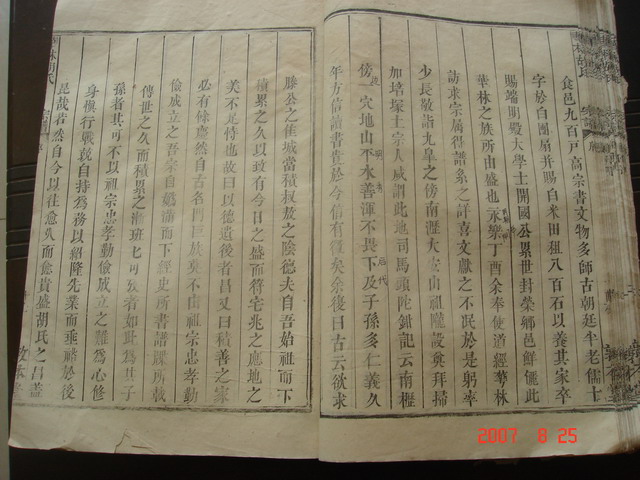 食邑九百戶高宗書文物多師古朝廷半老儒十
字於白團扇并賜白米田租八百石以養其家卒
賜端明殿大學士開國公累世封榮鄉邑鮮儷此
華林之族所由盛也永樂丁酉余奉使道經華林
訪求宗屬得譜系之詳喜文獻之不民於是躬率
少長敬詣九皐之傍南瀝大安山祖隴設奠拜掃
加培塚土宗人咸謂此地司馬頭陀鉗記云南櫪
傍穴地山不水善渾不畏下及子孫多仁義久
年方信讀書貴於今信有徵矣余復曰古云欲求
滕公之佳城當積叔敖之陰德夫自吾始祖而下
積累之久以致有今日之盛而符宅兆之應地之
美不足恃也故曰以德遺後者昌又曰積善之家
必有餘慶然自古名門巨族莫不由祖宗忠孝勤
儉成立之吾宗自滿而下經史所書譜牒所載
傳世之久而積累之淵班班可攷者如此爲其子
孫者其可不以祖宗忠孝勤儉成立之難爲心修
身極行戰兢自持爲務以紹隆先業而垂裕於後
昆哉若然自今以往愈久而愈貴盛胡氏之昌蓋
2007 8 25